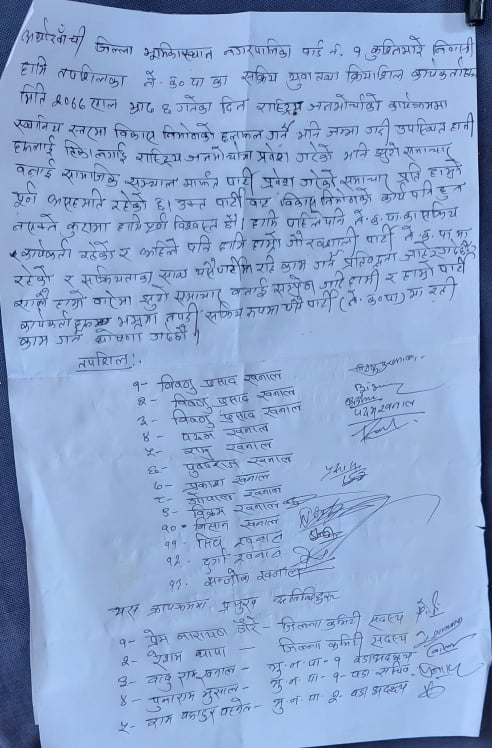 अर्घाखाँची जिल्ला भूमिकास्थान नगरपालिका वार्ड नं. १ निवासी
हामि तपशिलका ने. क. पा का सक्रिय युवा तथा क्रियाशिल कार्यकर्ताहरू
मिति २०७७ साल भाद्र ६ गतेका दिन राष्ट्रिय जनमोर्चाको कार्यक्रममा
स्थानिय स्तरमा विकास निर्माणको छलफल गर्ने भनि जम्मा गरी उपस्थित हामी
हरूलाई राष्ट्रिय जनमोर्चामा प्रवेश गरेको भनि झुठो समाचार
बनाई सामाजिक सञ्जाल मार्फत पार्टी प्रवेश गरेको समाचार प्रति हाम्रो
पूर्ण असहमति रहेको छ। उक्त पार्टी बाट विकास निर्माणको कार्य पनि हुन
नसक्ने कुरामा हामि पूर्ण विश्वस्त छौं। हामि पहिले पनि ने. क. पा. का सक्रिय
कार्यकर्ता रहेको र अहिले पनि हामि हाम्रो गौरवशाली पार्टी ने. क. पा. मा
रहेको र सक्रियताका साथ यसै पार्टीमा रहि काम गर्ने प्रतिबद्धता जाहेर गर्दछौं
हाम्रो बारेमा झुठो समाचार बनाई सम्प्रेषण गर्ने हामी र हाम्रो पार्टी
कार्यकर्ता भ्रममा नपरी सक्रिय रूपमा यसै पार्टी (ने. क. पा) मा रही
काम गर्ने घोषणा गर्दछौं।
तपशिल:-
१- विष्णु प्रसाद खनाल
२- विष्णु प्रसाद खनाल
३- विष्णु प्रसाद खनाल
४- पदम खनाल पदम खनाल
५- राजु खनाल
६- खनाल
७- प्रकाश खनाल
८- गोपाल खनाल
९- विक्रम खनाल
१०- निसान खनाल
११- शिव खनाल
१२- दुर्गा खनाल
१३- सन्तोक खनाल
यस कार्यक्रममा प्रमुख अतिथिहरू
१- प्रेम नारायण जि.सी. - जिल्ला कमिटी सदस्य
२- रेशम थापा - जिल्ला कमिटी सदस्य
३- बाबु राम खनाल - भु. न. पा - १ वडाअध्यक्ष
४- पुनाराम भुसाल - भु. न. पा - १ वडा सचिव
५- राम बहादुर - भु. न. पा - २ वडा अध्यक्ष